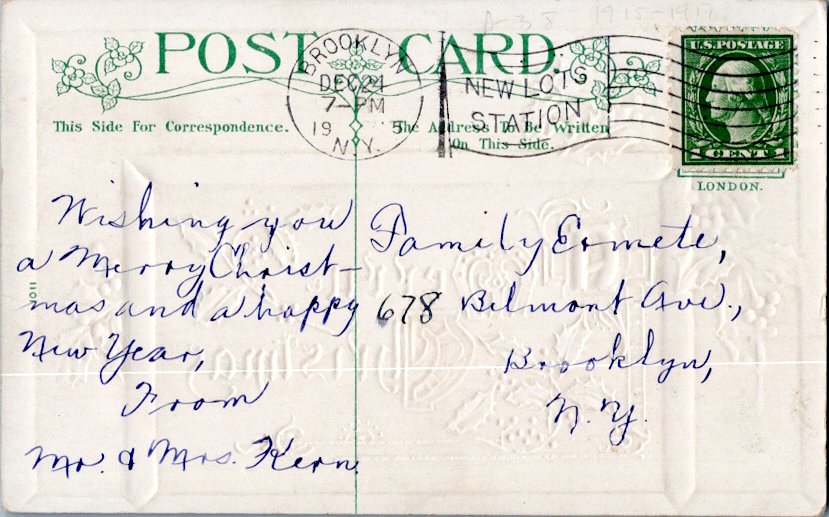 A-38 1915-1917
POST CARD.
BROOKLYN
DEC 24
7-PM
19 5
N.Y.
NEW LOTS
STATION
U.S. POSTAGE
1 CENT 1
This Side For Correspondence.
The Address To Be Written
On This Side.
LONDON.
Wishing you
a Merry Christ-
mas and a happy
New Year,
From
Mr. & Mrs. Kern.
Family Ermete,
678 Belmont Ave.,
Brooklyn,
N.Y.
1011